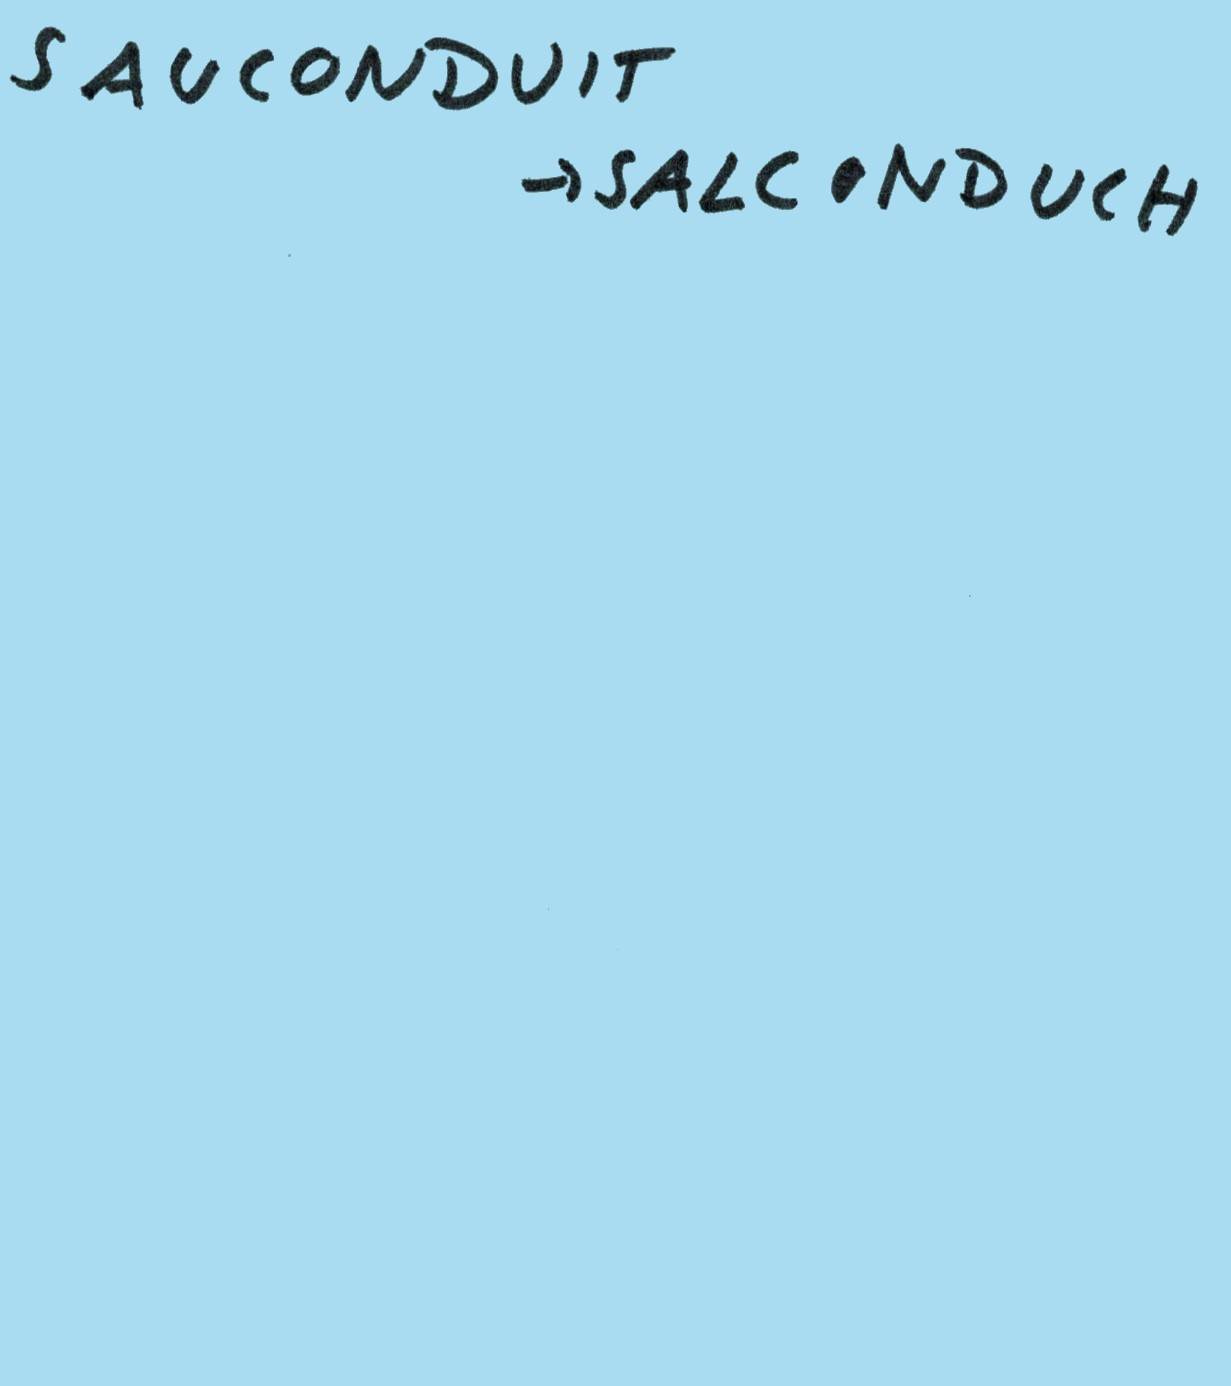 SAUCONDUIT
→SALCONDUCH